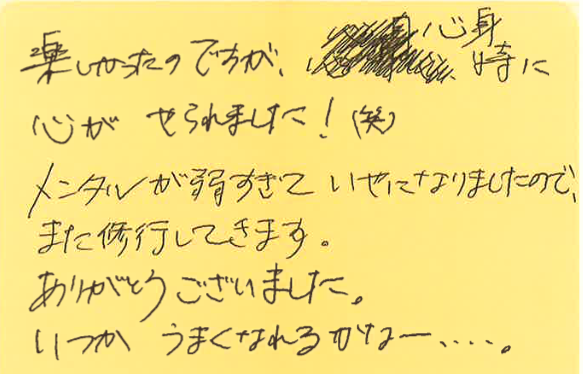 楽しかったのですが、心身 特に
心が せられました！(笑)
メンタルが弱すぎて いやになりましたので、
また修行してきます。
ありがとうございました。
いつか うまくなれるかなー・・・・。